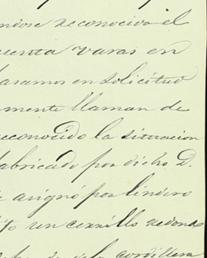 ndose reconocido el
cuenta varas en
pasamos en solicitud
mente llaman de
reconocido la situacion
fabricado por dicho D.
e asignó por lindero
to un cerrillo redondo
de la cordillera